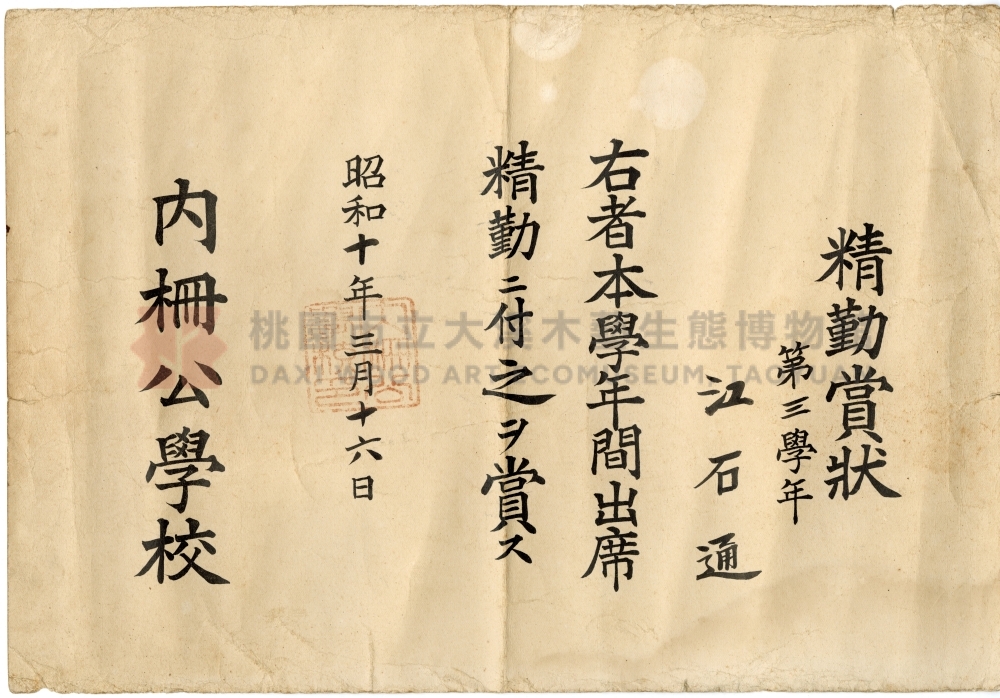 精勤賞狀
第三學年
江石通
右者本學年間出席
精勤ニ付之ヲ賞ス
昭和十年三月十六日
内柵公學校
桃園市立大溪木藝生態博物館
DAXI WOOD ART ECOMUSEUM, TAOYUAN